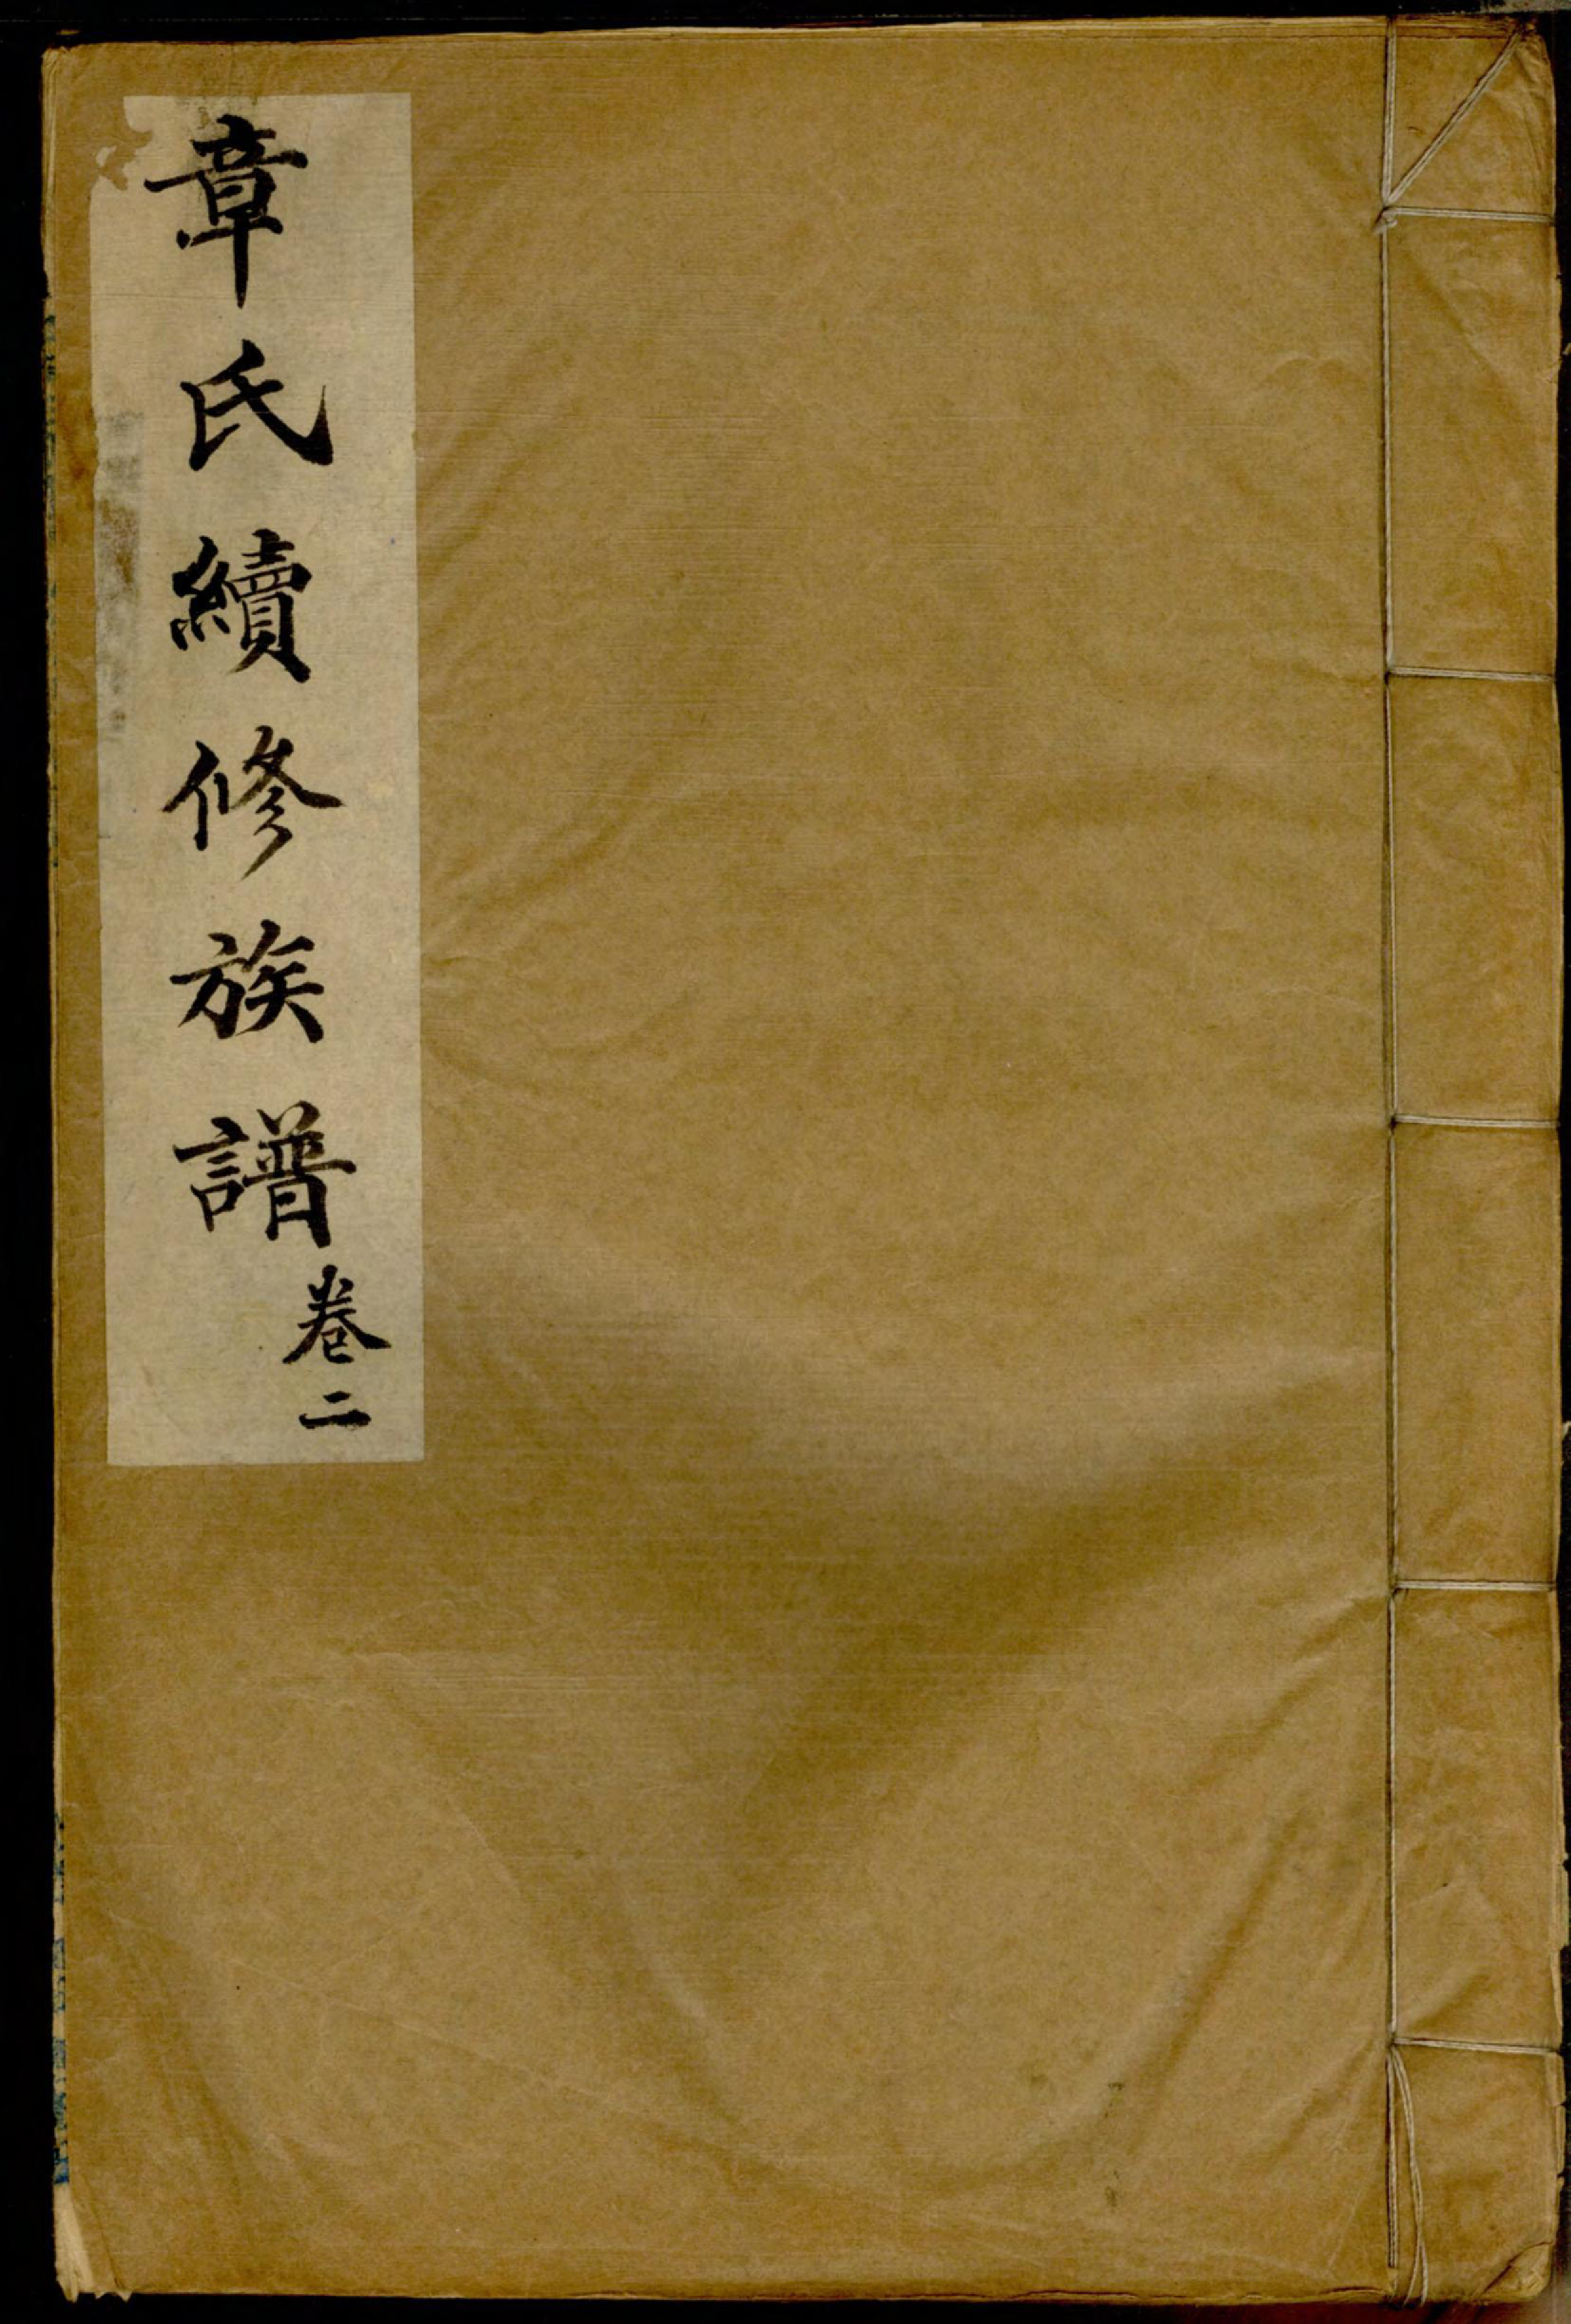 章氏續修族譜
卷二